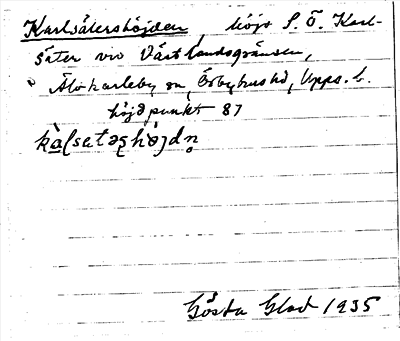 Karlsätershöjden, höjd S. Ö. Karl-
säter vid Västlandsgränsen,
Älvkarleby sn, Örbyhus hd, Upps. l.
höjdpunkt 87
Gösta Glad 1935